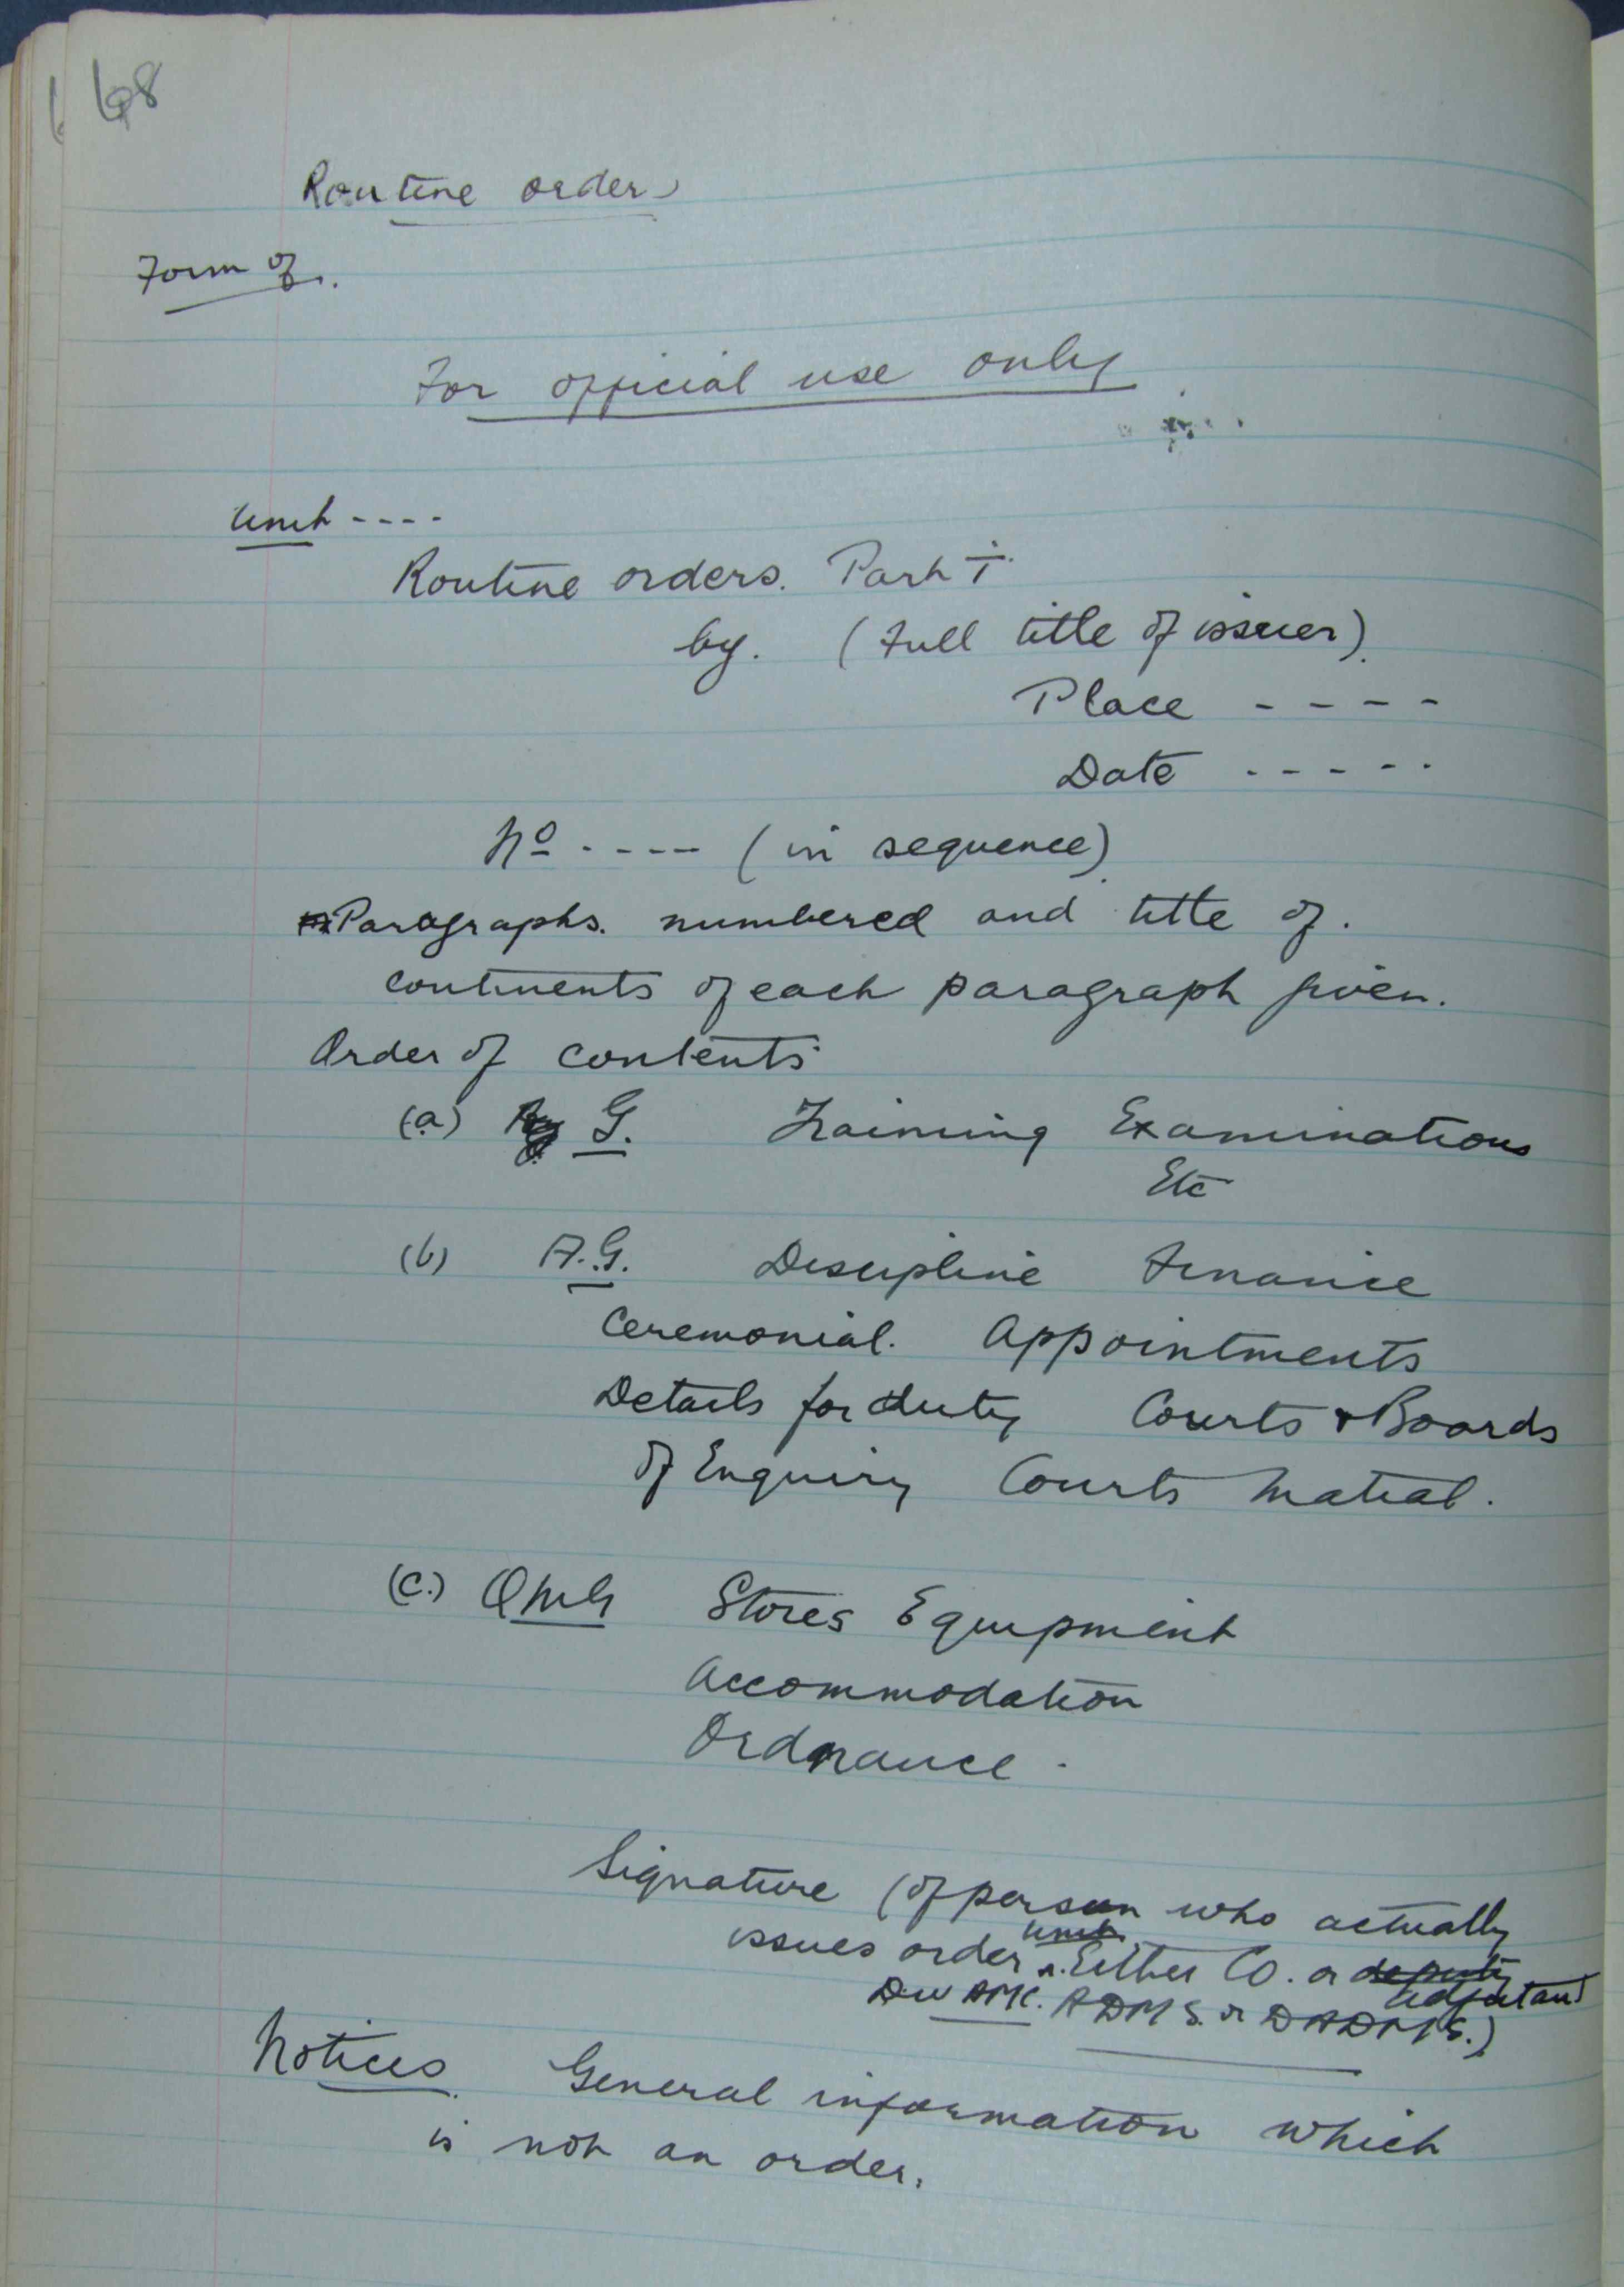 68
Routine orders
Form of.
For official use only
Unit ----
Routine orders. Part I.
by. (Full title of issuer).
Place ----
Date -----
No ---- (in sequence)
Paragraphs. numbered and title of.
continents of each paragraph given.
Order of contents
(a) G. Training Examinations
Etc
(b) A.G. Discipline Finance
Ceremonial. Appointments
Details for duty Courts & Boards
of Enquiry Courts Matial.
(c.) QMG Stores Equipment
Accommodation
Ordnance.
Signature (of person who actually
unit
issues order. Either CO. or deputy
adjutant
Div AMC. ADMS. or DADMS.)
Notices. General information which
is not an order.